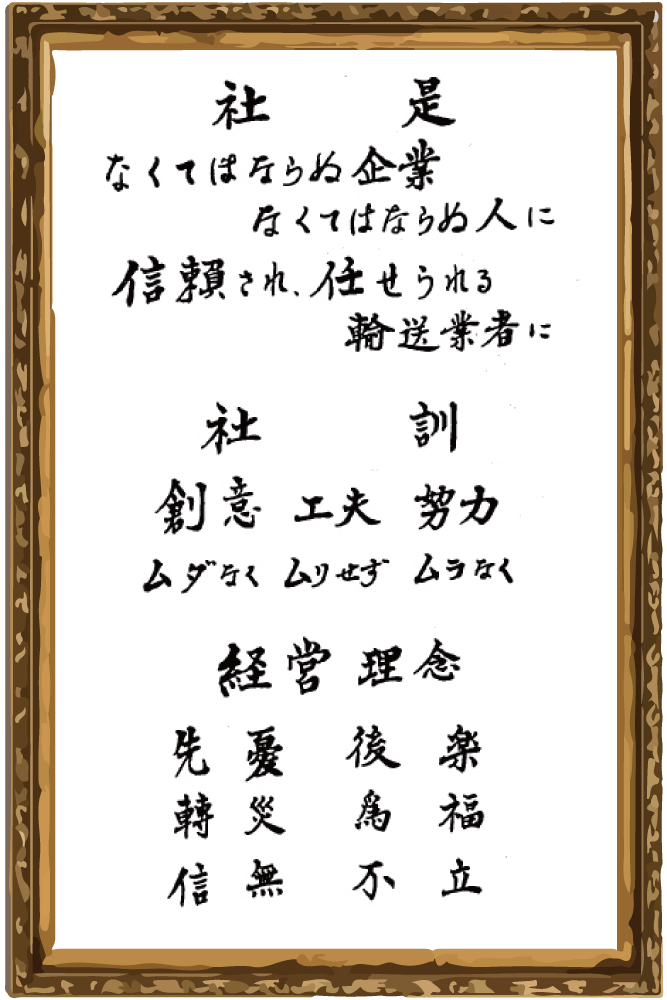 社 是
なくてはならぬ企業
なくてはならぬ人に
信頼され、任せられる
輸送業者に
社 訓
創意 工夫 努力
ムダなく ムリせず ムラなく
経営 理念
先 憂 後 楽
轉 災 為 福
信 無 不 立